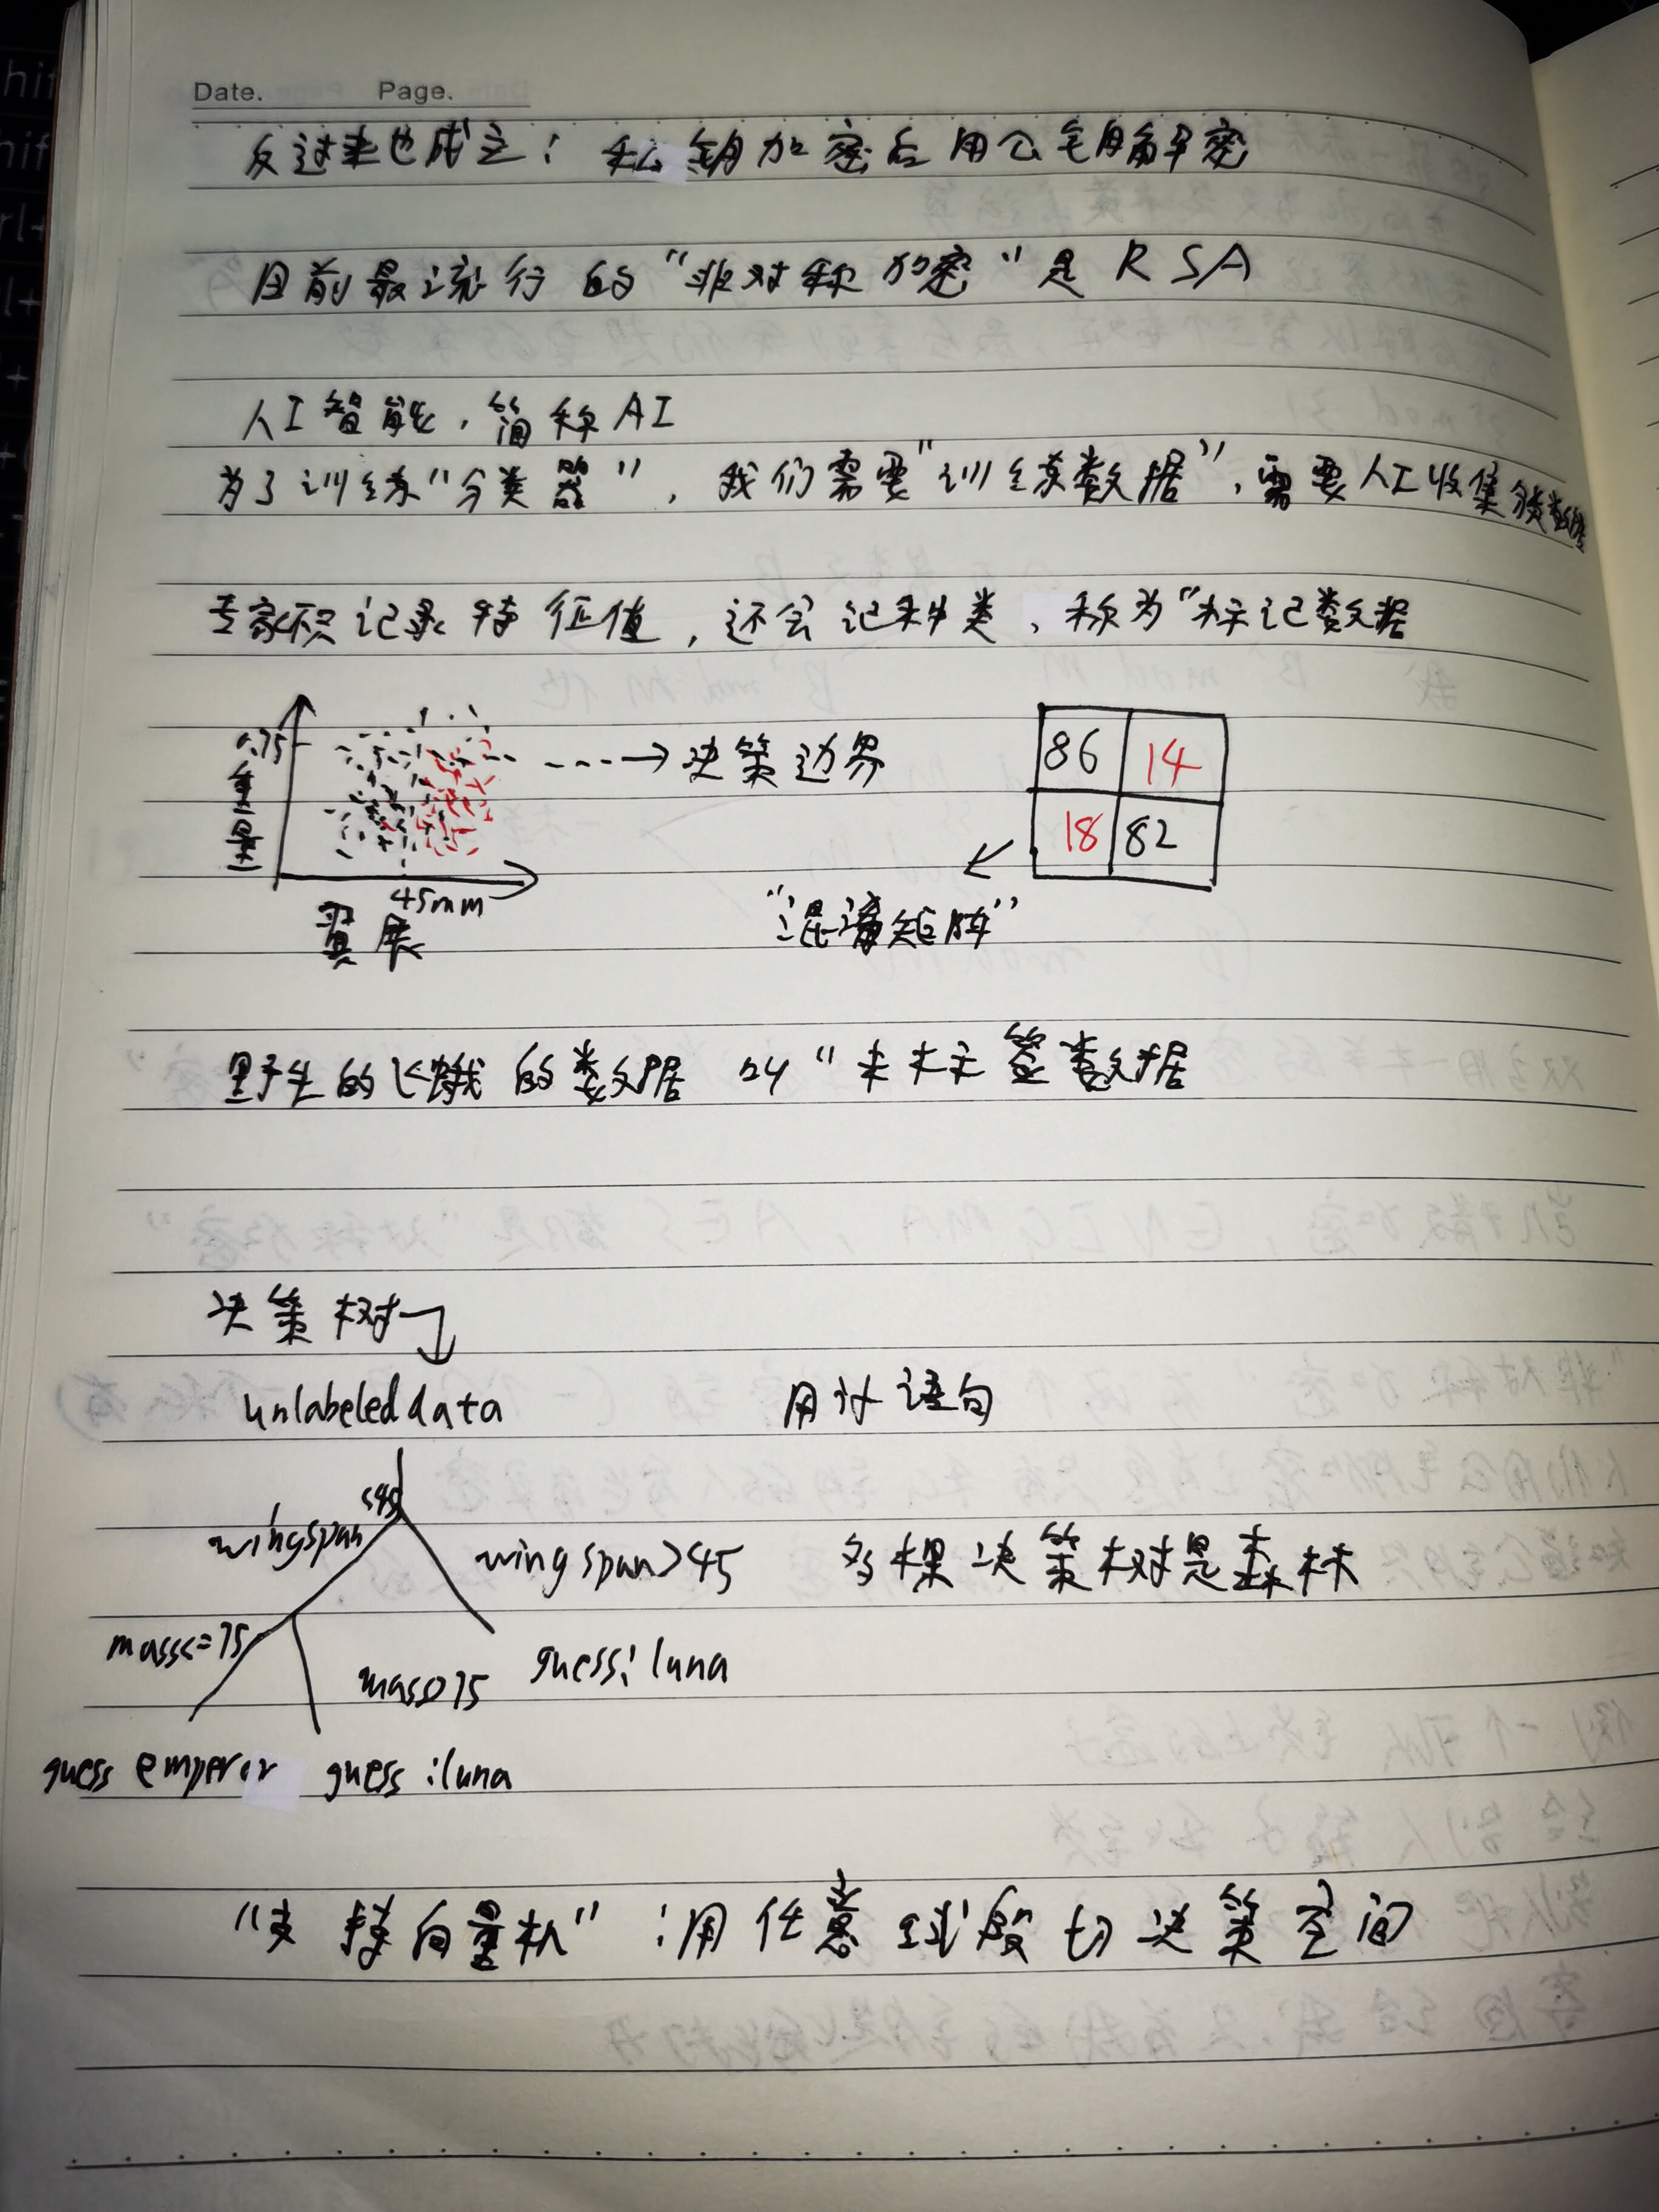 Date. Page.
反过来也成立：私钥加密后用公钥解密
目前最流行的“非对称加密”是 RSA
人工智能，简称AI
为了训练“分类器”，我们需要“训练数据”，需要人工收集
专家 记录特征值，还会记种类，称为“标记数据
.75
重量
45mm
翼展
决策边界
86 14
18 82
“混淆矩阵”
野生的飞蛾的数据 叫“未标签数据
决策树
unlabeled data 用if语句
<45
wingspan wingspan>45 多棵决策树是森林
mass<=75 mass>75 guess: luna
guess emperor guess :luna
“支持向量机”：用任意线段切决策空间